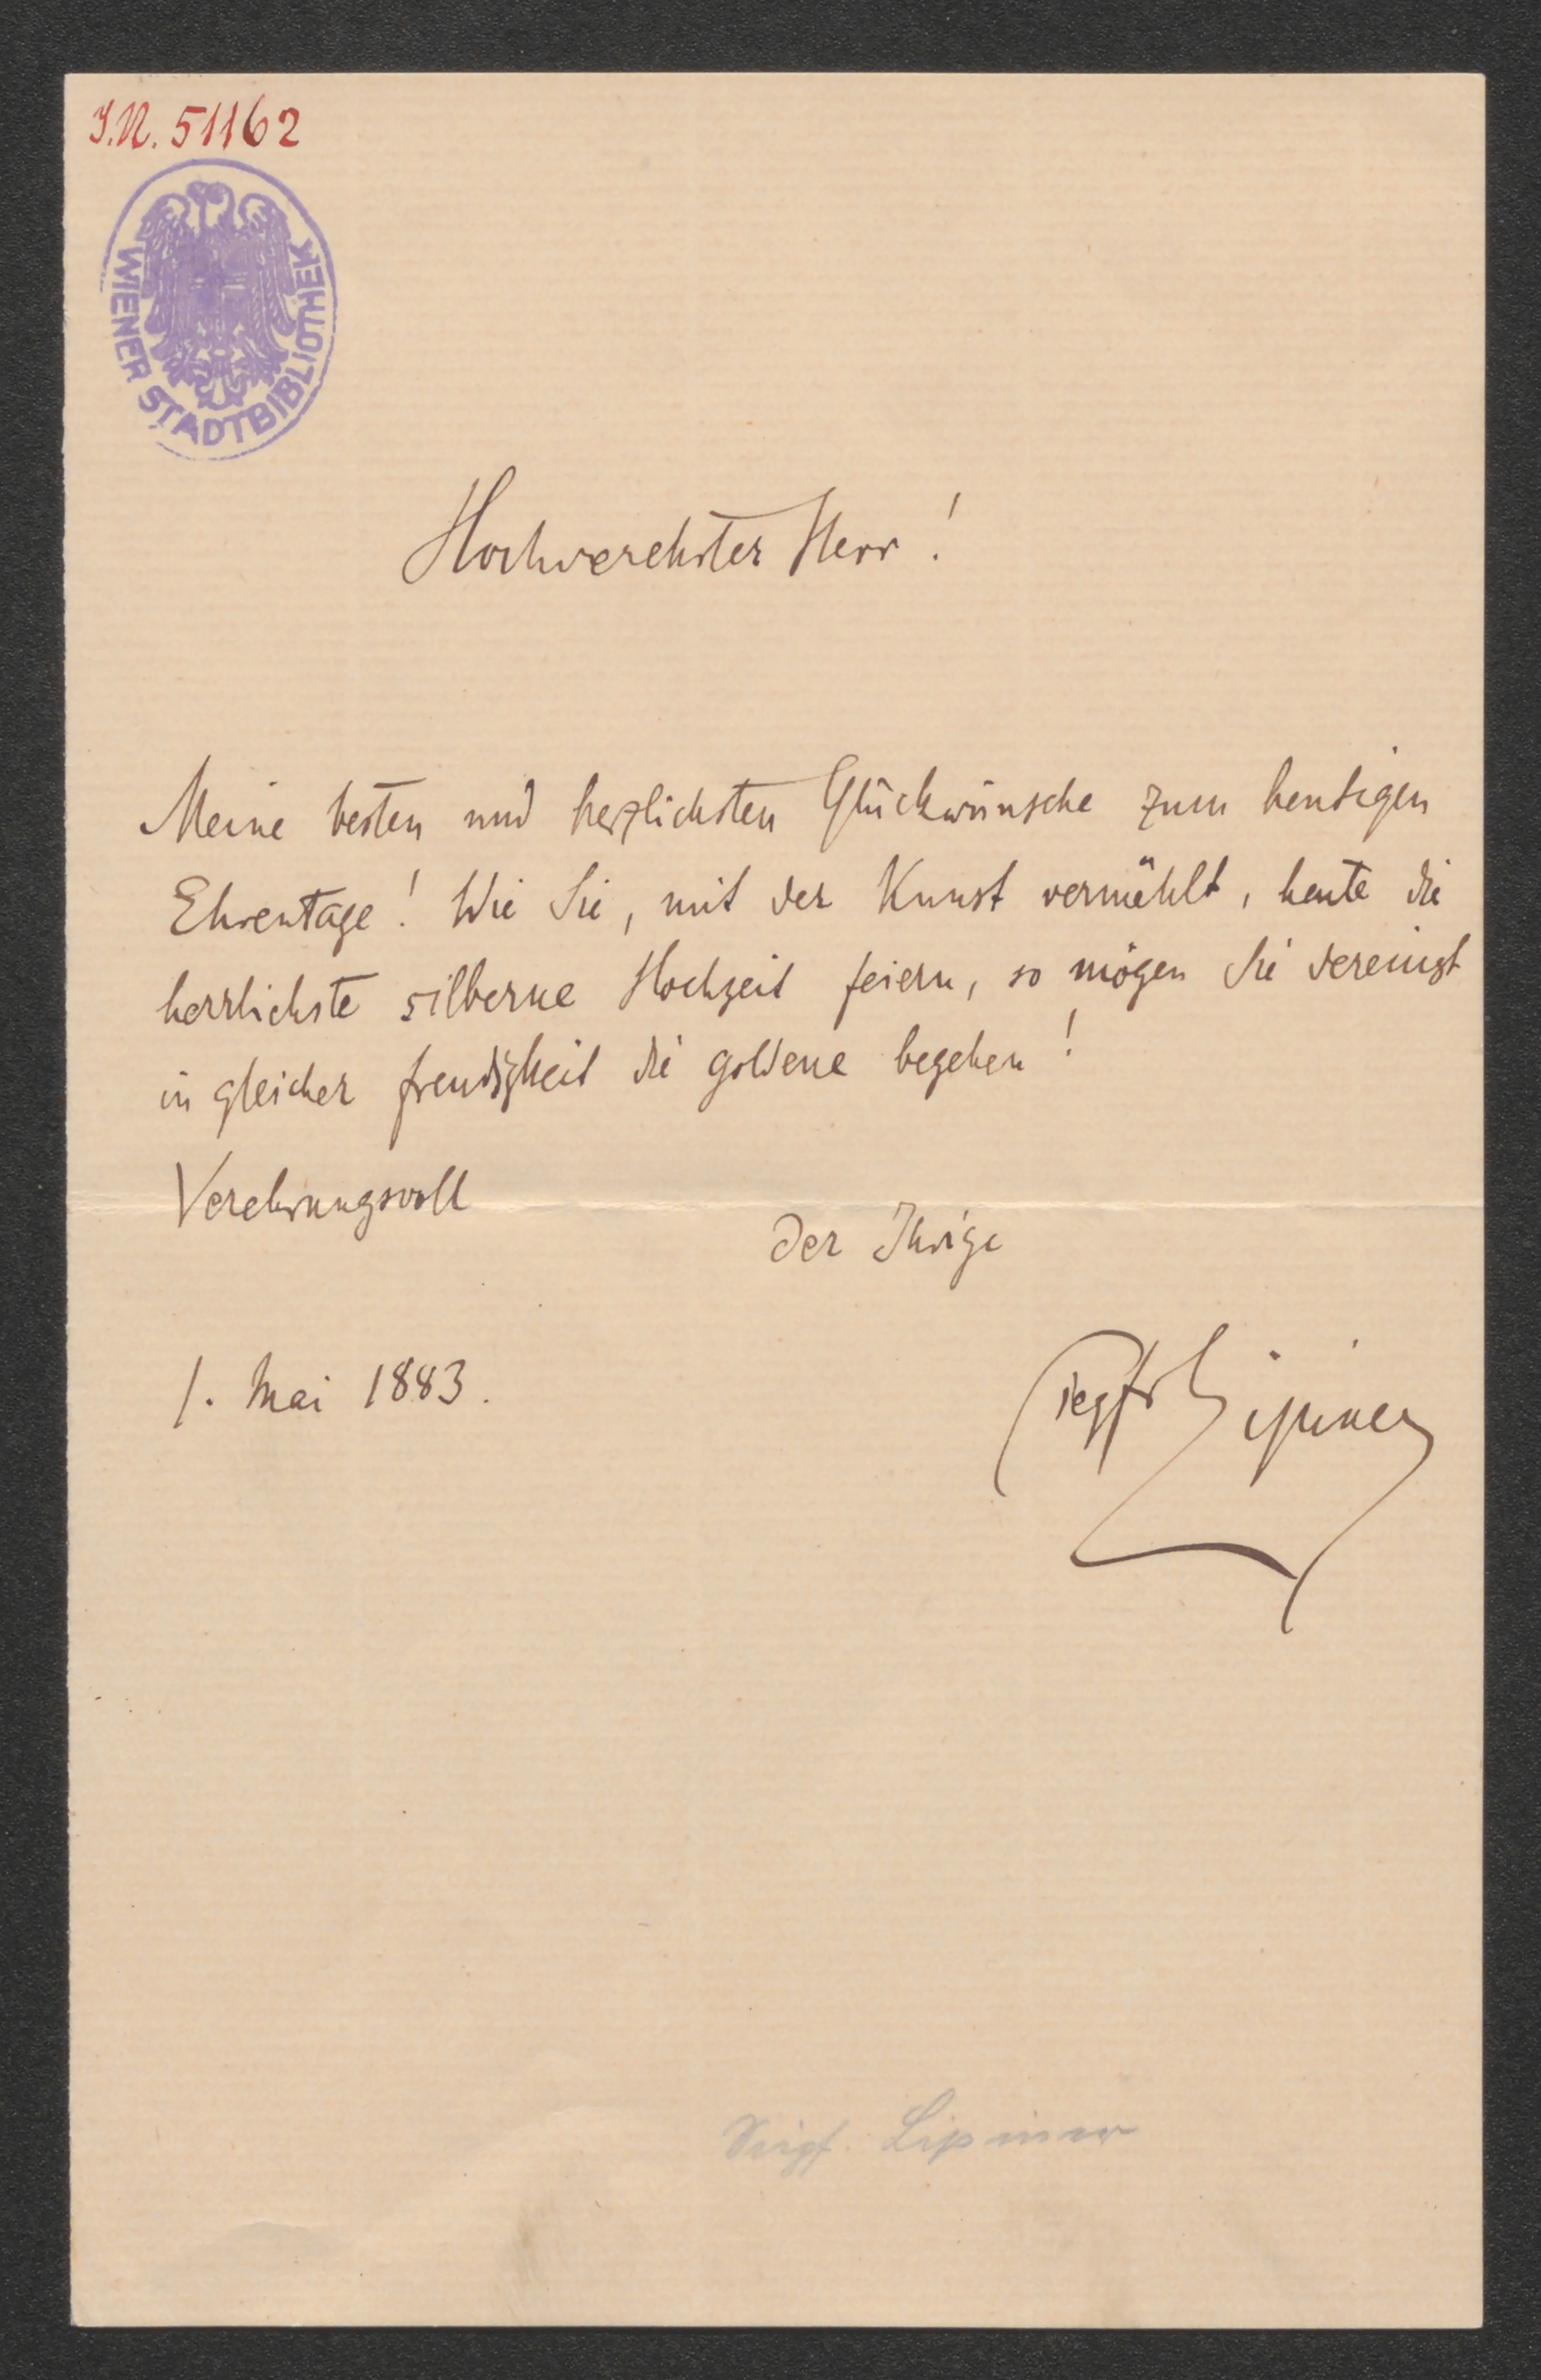 I.N. 51162
WIENER STADTBIBLIOTHEK
Hochverehrter Herr!
Meine besten und herzlichsten Glückwünsche zum heutigen
Ehrentage! Wie Sie, mit der Kunst vermählt, heute die
herrlichste silberne Hochzeit feiern, so mögen Sie dereinst
in gleicher Freudigkeit die goldene begehen!
Verehrungsvoll
der Ihrige
1. Mai 1883.
Siegfr Lipiner
Siegf. Lipiner